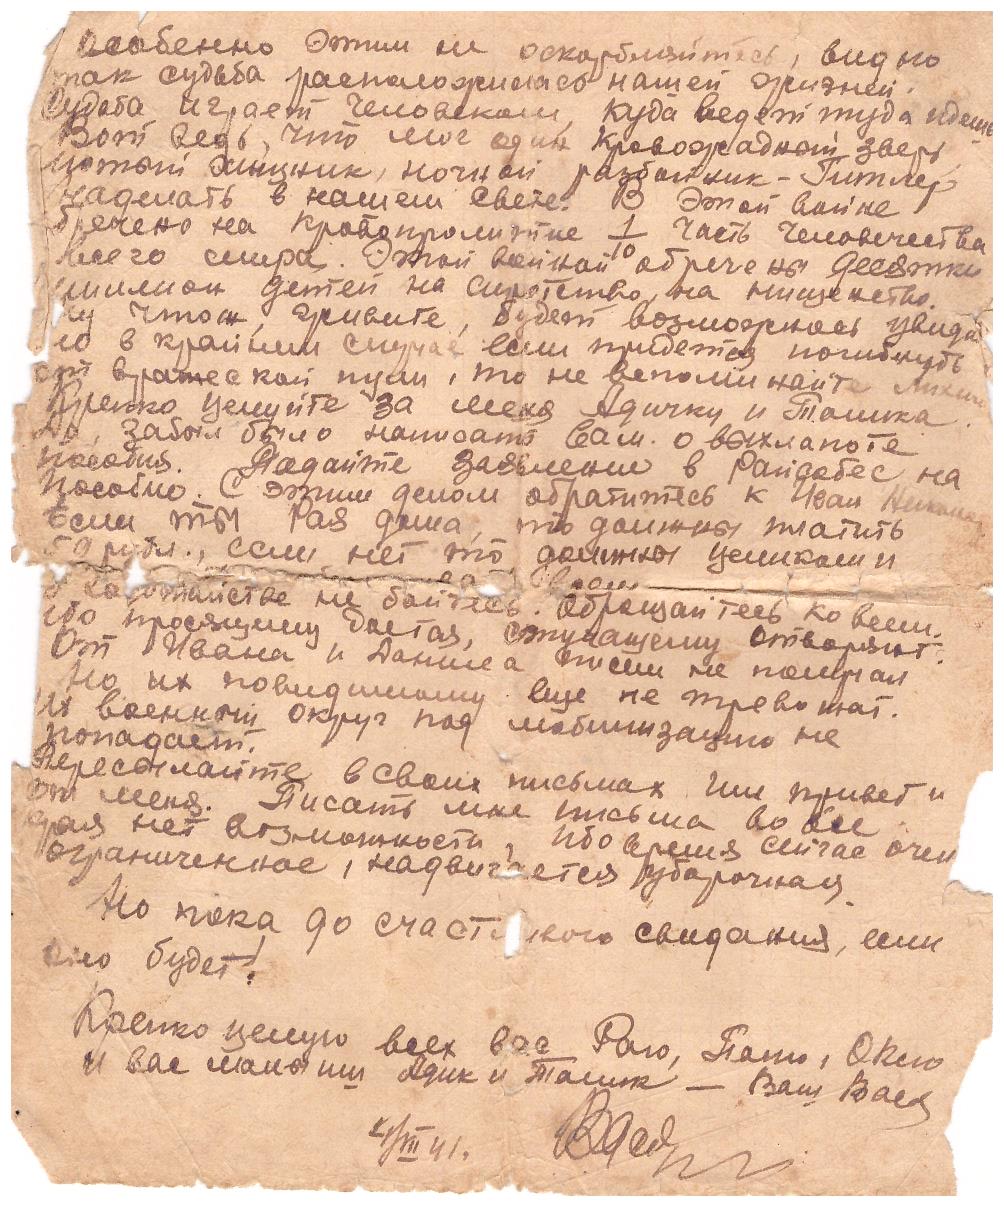 Особенно этим не оскорбляйтесь, видно
так судьба расположилась нашей жизней.
Судьба играет человеком, куда ведет туда идешь
Вот ведь, что мог один кровожадный зверь
лютый хищник, ночной разбойник – Гитлер
наделать в нашем свете. В этой войне
бречено на кровопролитие 1/10 часть человечества
всего мира. Этой войной обречены десятки
миллион детей на сиротство, на нищенство.
Ну чтож, живите, будет возможнось увидим
но в крайнем случае если придется погибнуть
от вражеской пули, то не вспоминайте лихом
Крепко целуйте за меня Адичку и Толика.
Да, забыл было написать вам о выхлапоте
пособия. Подайте заявление в Райсобес на
пособию. С этим делом обратитесь к Иван
Если ты Рая дома, то должны платить
рубл., если нет то должны целиком и
ходотайстве не бойтесь. Обращайтесь ко всем.
ибо просящему дастся, стучащему отворят.
От Ивана и Данила писем не получал
Но их повидимому еще не тревожат.
Их военный округ под мобилизацию не
попадает.
Пересылайте в своих письмах им привет и
от меня. Писать мне письма во все
края нет возможности, ибо время сейчас очен
ограниченное, надвигается уборочная.
Но пока до счастливого свидания, если
оно будет!
Крепко целую всех вас Раю, Пашу, Оксю
и вас малыши Адик и Толик — Ваш Вася
4/VIII 41. Вася